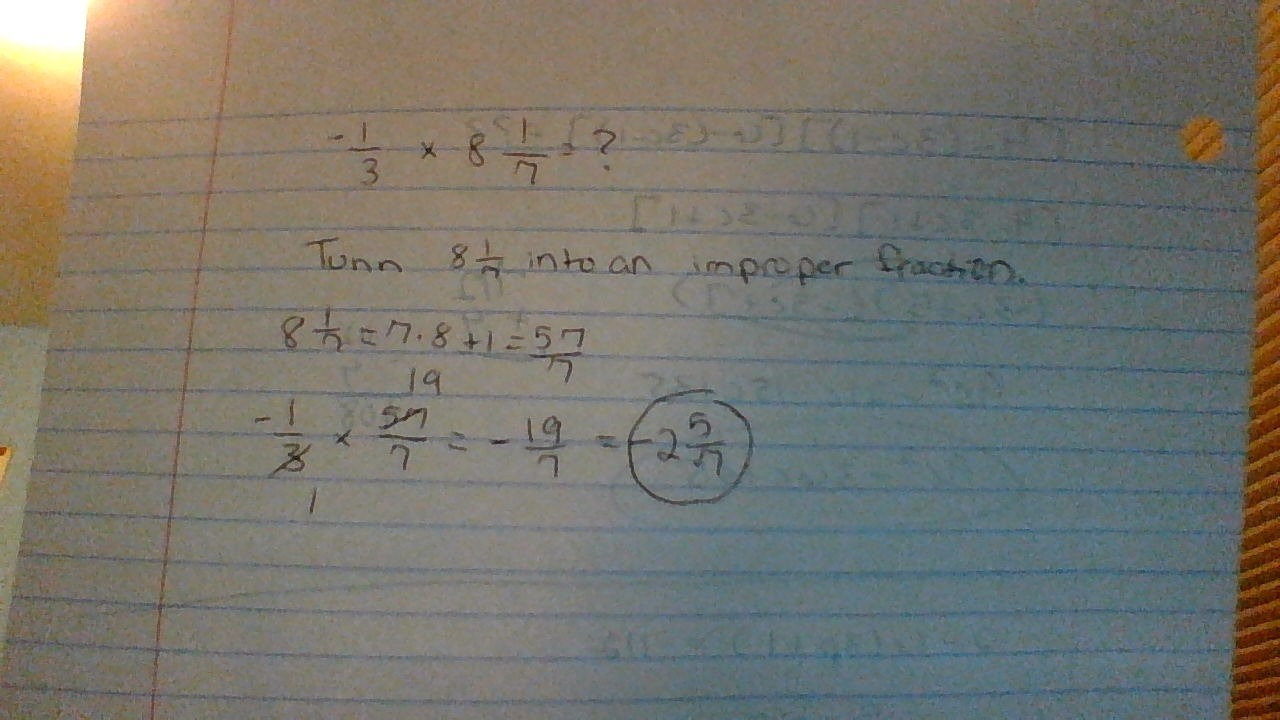 -1/3 × 8 1/7 = ?
Turn 8 1/7 into an improper fraction.
8 1/7 = 7.8 + 1 = 57/7
19
-1/3 × 57/7 = -19/7 = -2 5/7
1